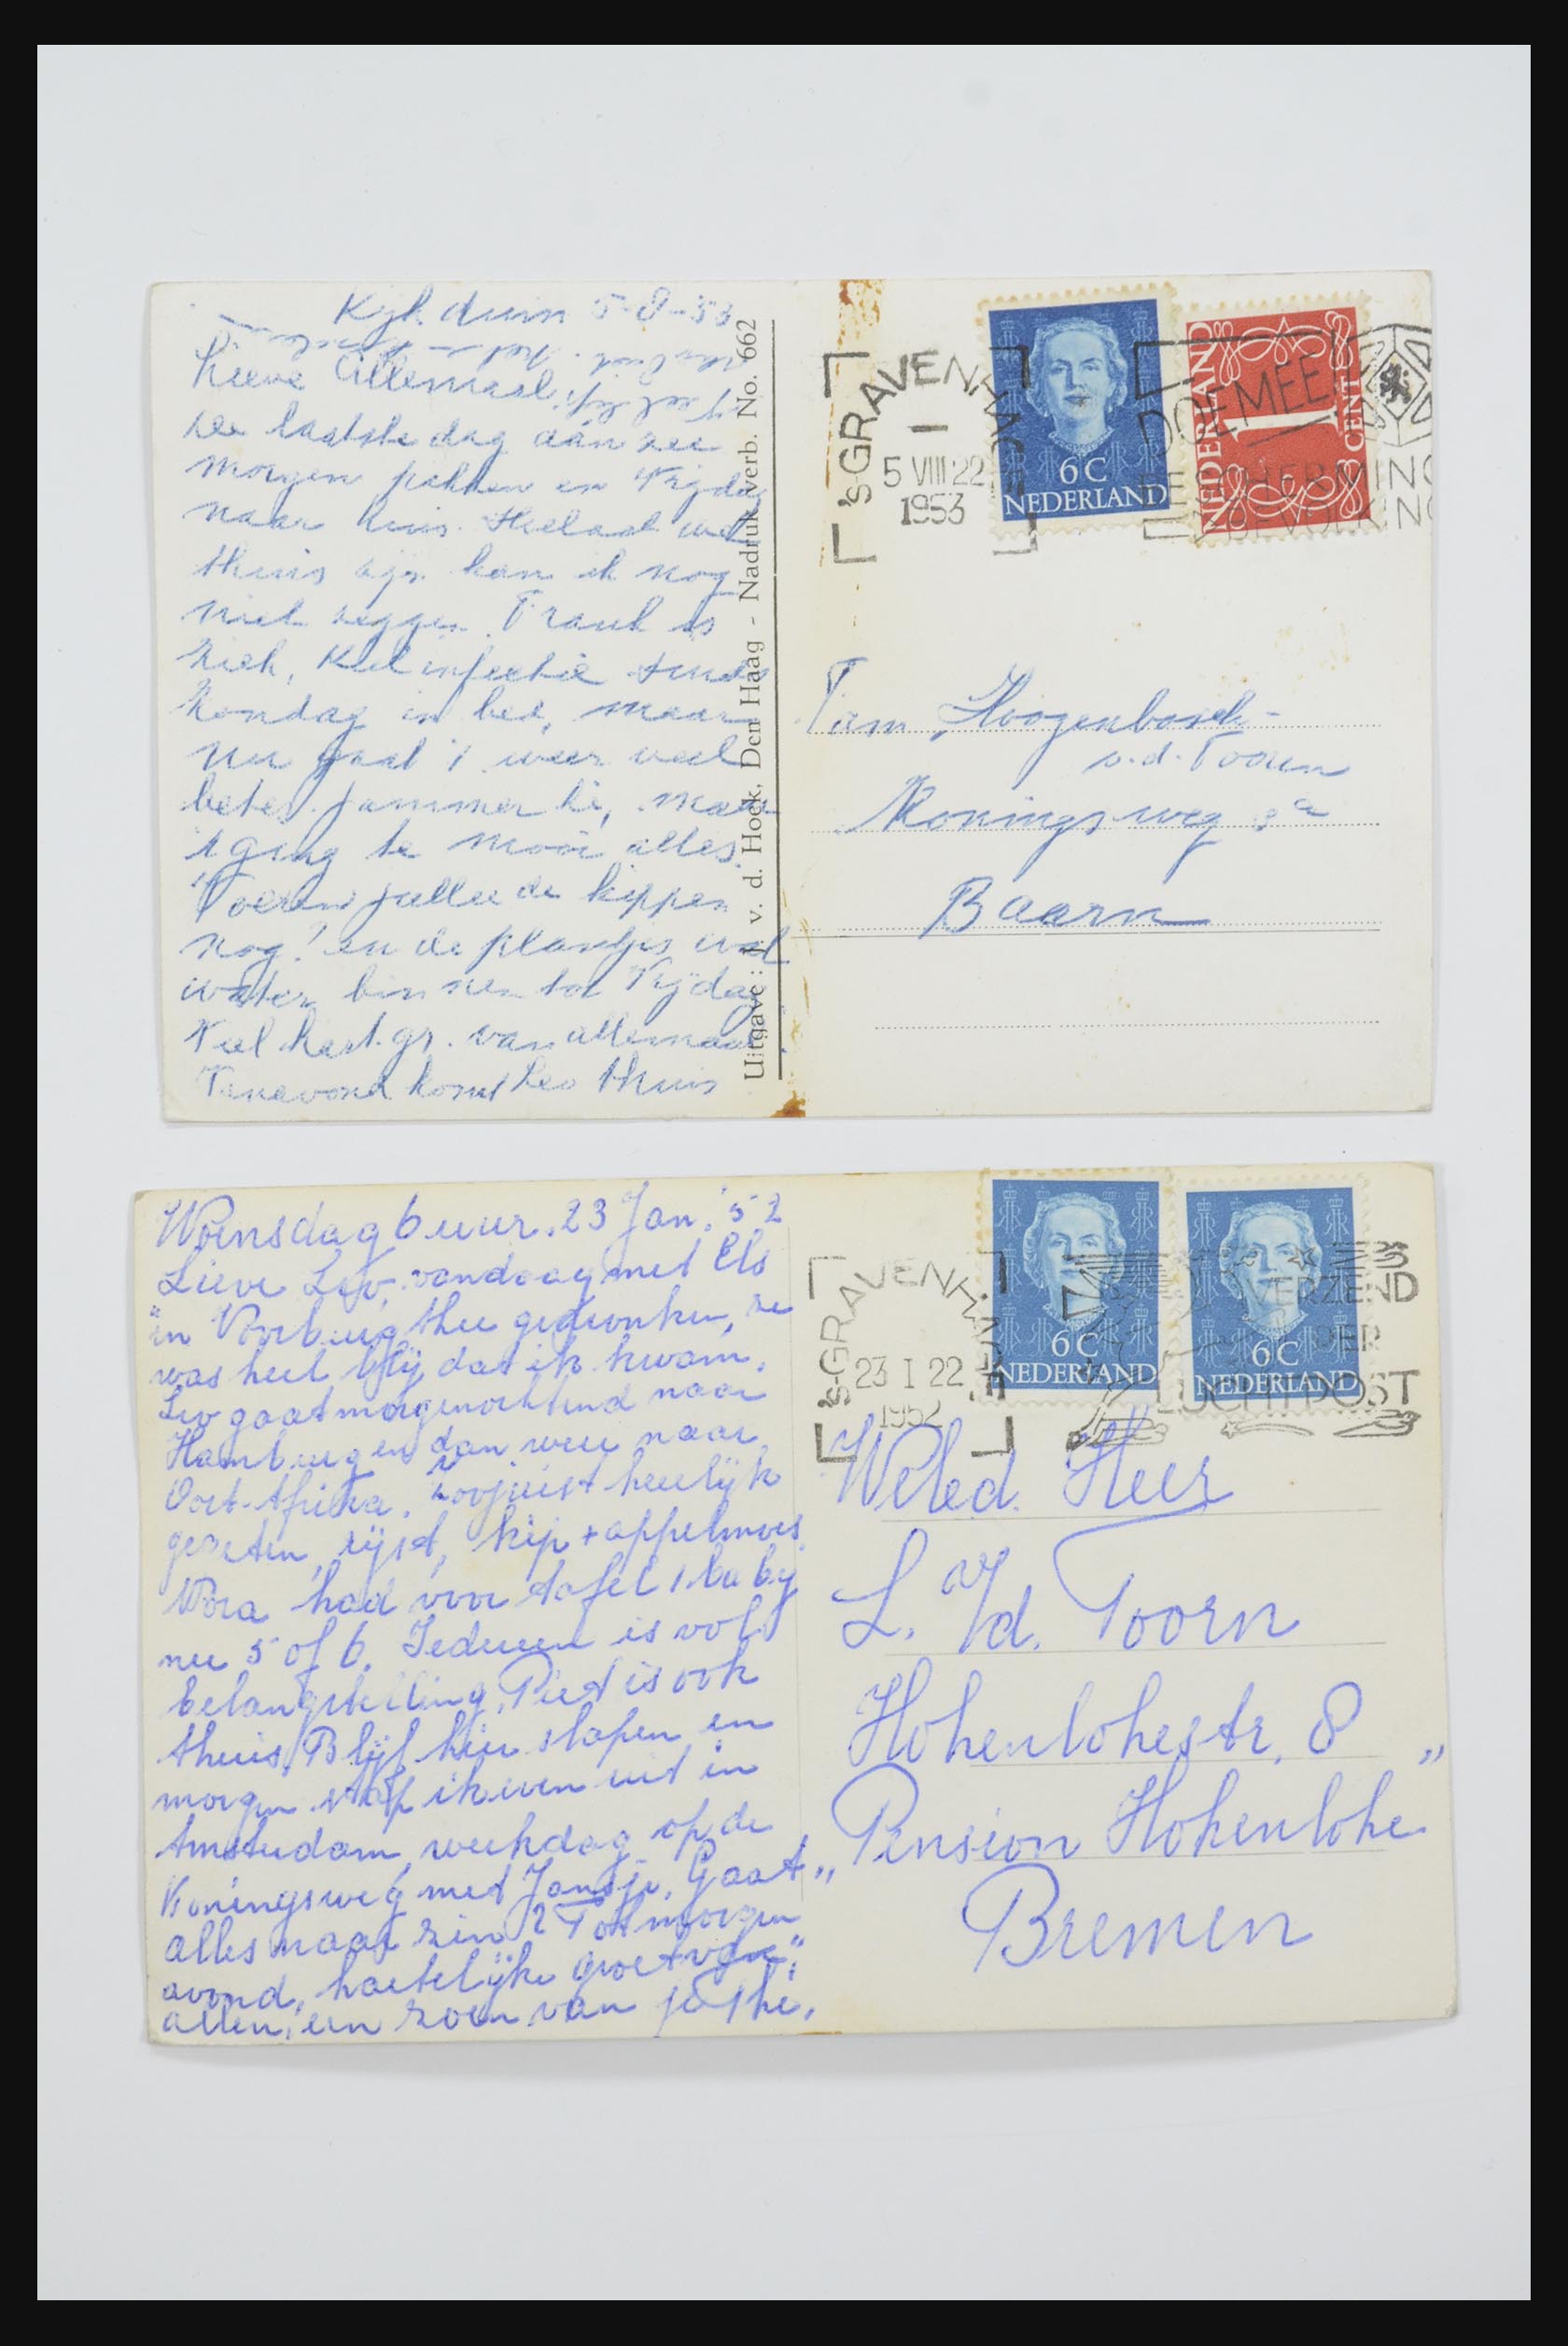 Kijkduin 5-8-53
Lieve Allemaal
De laatste dag aan zee
morgen pakken en Vrijdag
naar huis. Hoelaat we
thuis zijn kan ik nog
niet zeggen. Frank is
ziek, keelinfectie sinds
Zondag in bed, maar
nu gaat 't weer veel
beter. Jammer hè, maar
't ging te mooi alles.
Voeren jullie de kippen
nog? en de plantjes wat
water binnen tot Vrijdag
Veel hart. gr. van allemaal.
Vanavond komt Leo thuis
Uitgave: v. d. Hoek, Den Haag - Nadruk verb. No. 662
'S-GRAVENHAGE
5 VIII 22
1953
6C
NEDERLAND
NEDERLAND
1
CENT
DOE MEE
BESCHERMING
BEVOLKING
Fam. Hoogenbosch-
v.d. Toorn
Koningsweg
Baarn
Woensdag 6 uur. 23 Jan. '52
Lieve Leo, vandaag met Els
in Voorburg thee gedronken, ze
was heel blij dat ik kwam.
Leo gaat morgenochtend naar
Hamburg en dan weer naar
Oost-Afrika. Zoojuist heerlijk
gegeten, rijst, kip + appelmoes.
Nora had voor tafel 1 baby
nu 5 of 6. Iedereen is vol
belangstelling. Piet is ook
thuis. Blijf hier slapen en
morgen stap ik even uit in
Amsterdam, weekdag op de
Koningsweg met Jansje. Gaat
alles naar zin? Tot morgen
avond, hartelijke groet van
allen, een zoen van je
'S-GRAVENHAGE
23 I 22
1952
6C
NEDERLAND
6C
NEDERLAND
VERZEND
PER
LUCHTPOST
Weled. Heer
L. v/d. Toorn
Hohenlohestr. 8
„Pension Hohenlohe”
Bremen